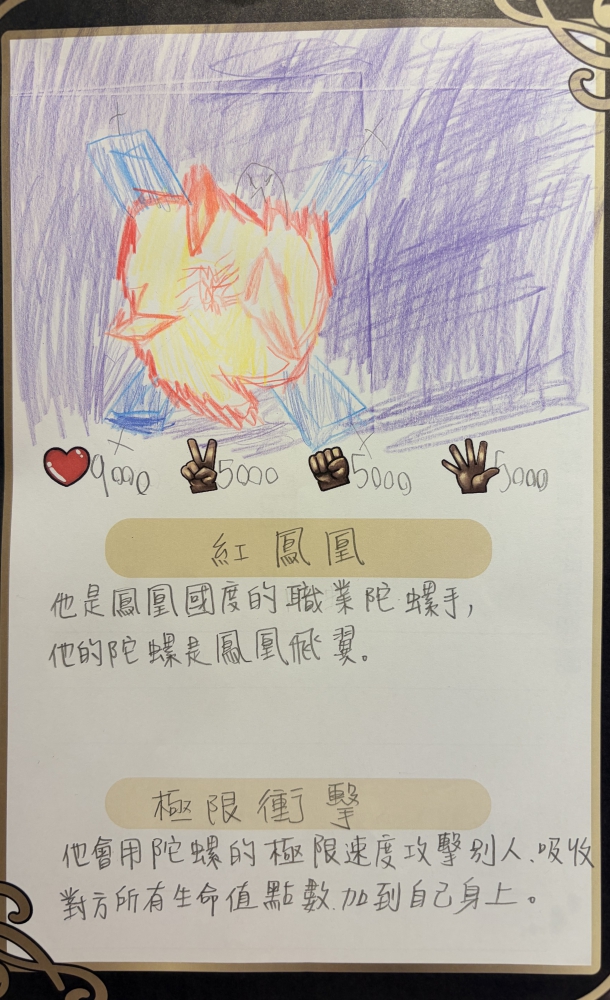 9000 5000 5000 5000
紅鳳凰
他是鳳凰國度的職業陀螺手,
他的陀螺是鳳凰飛翼。
極限衝擊
他會用陀螺的極限速度攻擊別人、吸收
對方所有生命值點數、加到自己身上。